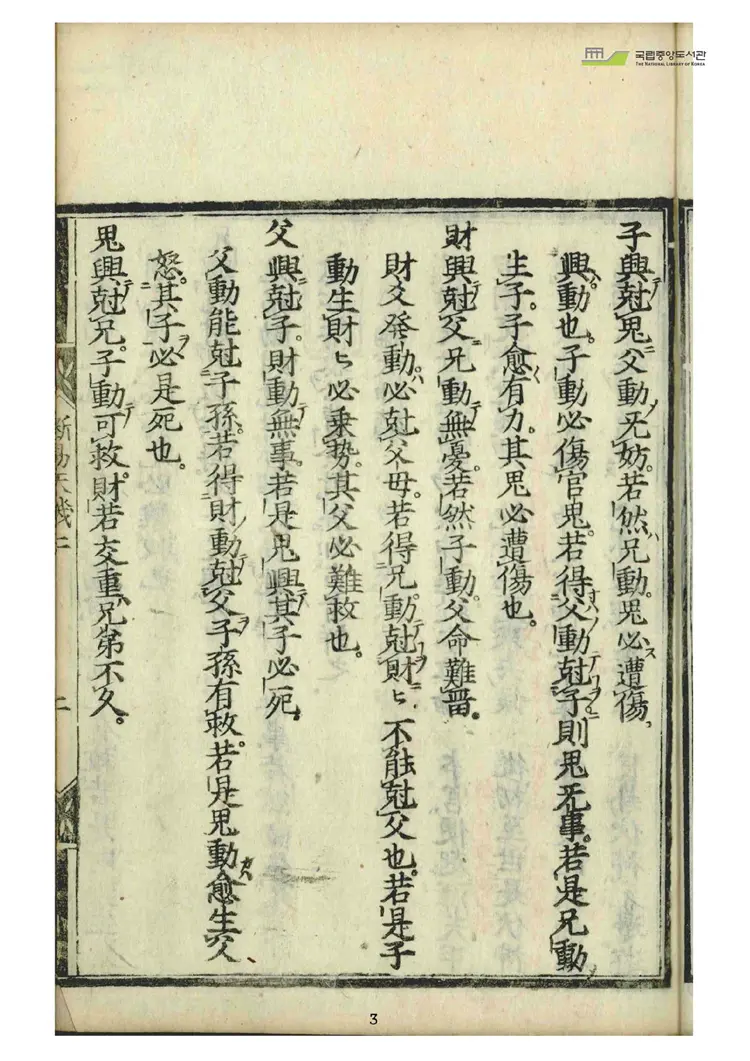 국립중앙도서관
THE NATIONAL LIBRARY OF KOREA
子興尅鬼父動旡妨若然兄動鬼必遭傷
興動也子動必傷官鬼若得父動尅子則鬼旡事若是兄動
生子子愈有力其鬼必遭傷也
財興尅父兄動無憂若然子動父命難留
財爻發動必尅父母若得兄動尅財ヒ不能尅父也若是子
動生財ヒ必乗勢其父必難救也
父興尅子財動無事若是鬼興其子必死
父動能尅子孫若得財動尅父子孫有救若是鬼動愈生父
怒其子必是死也
鬼興尅兄子動可救財若交重兄弟不久
断易天機二
二
3